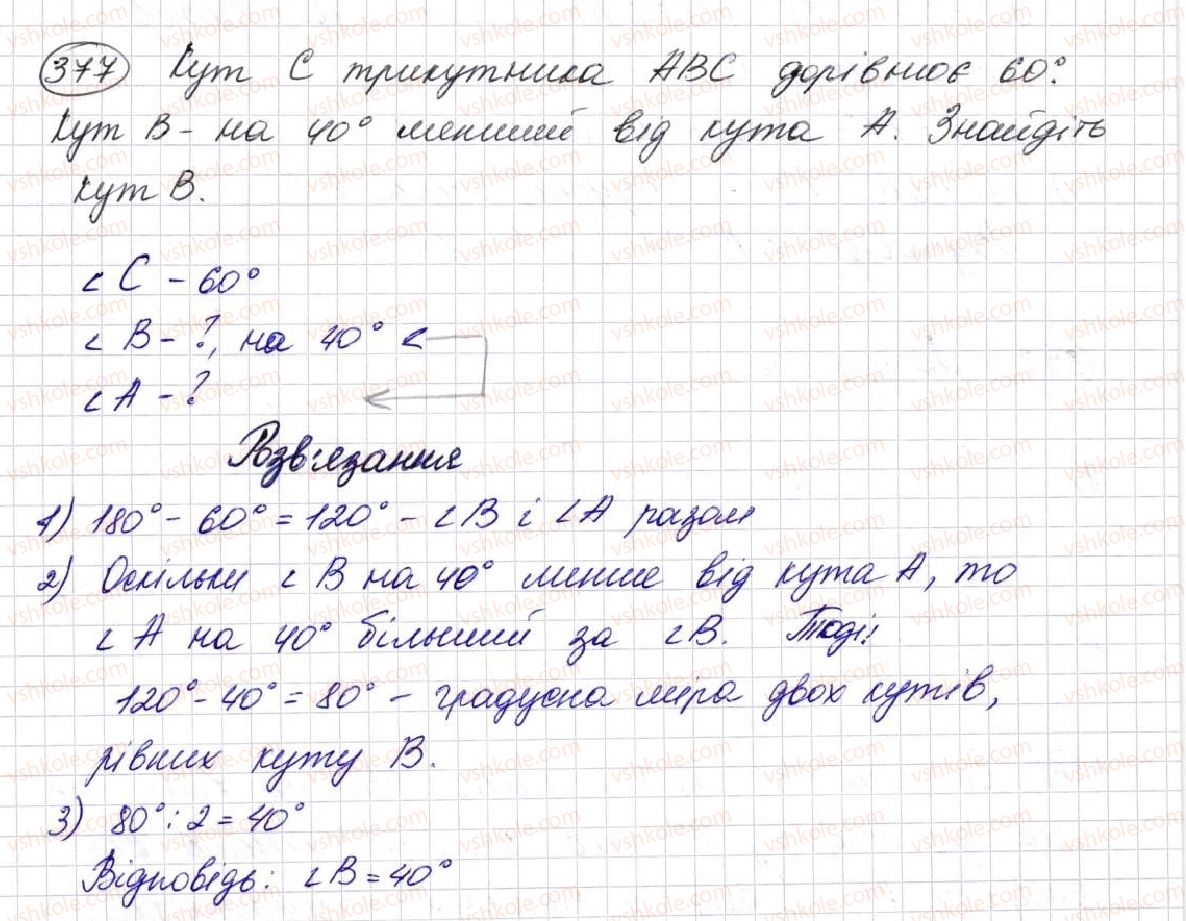 377 Кут C трикутника ABC дорівнює 60°.
Кут B - на 40° менший від кута A. Знайдіть
кут B.
∠C - 60°
∠B - ?, на 40° <
∠A - ?
Розв'язання
1) 180° - 60° = 120° - ∠B і ∠A разом
2) Оскільки ∠B на 40° менше від кута A, то
∠A на 40° більший за ∠B. Тоді:
120° - 40° = 80° - градусна міра двох кутів,
рівних куту B.
3) 80° : 2 = 40°
Відповідь: ∠B = 40°